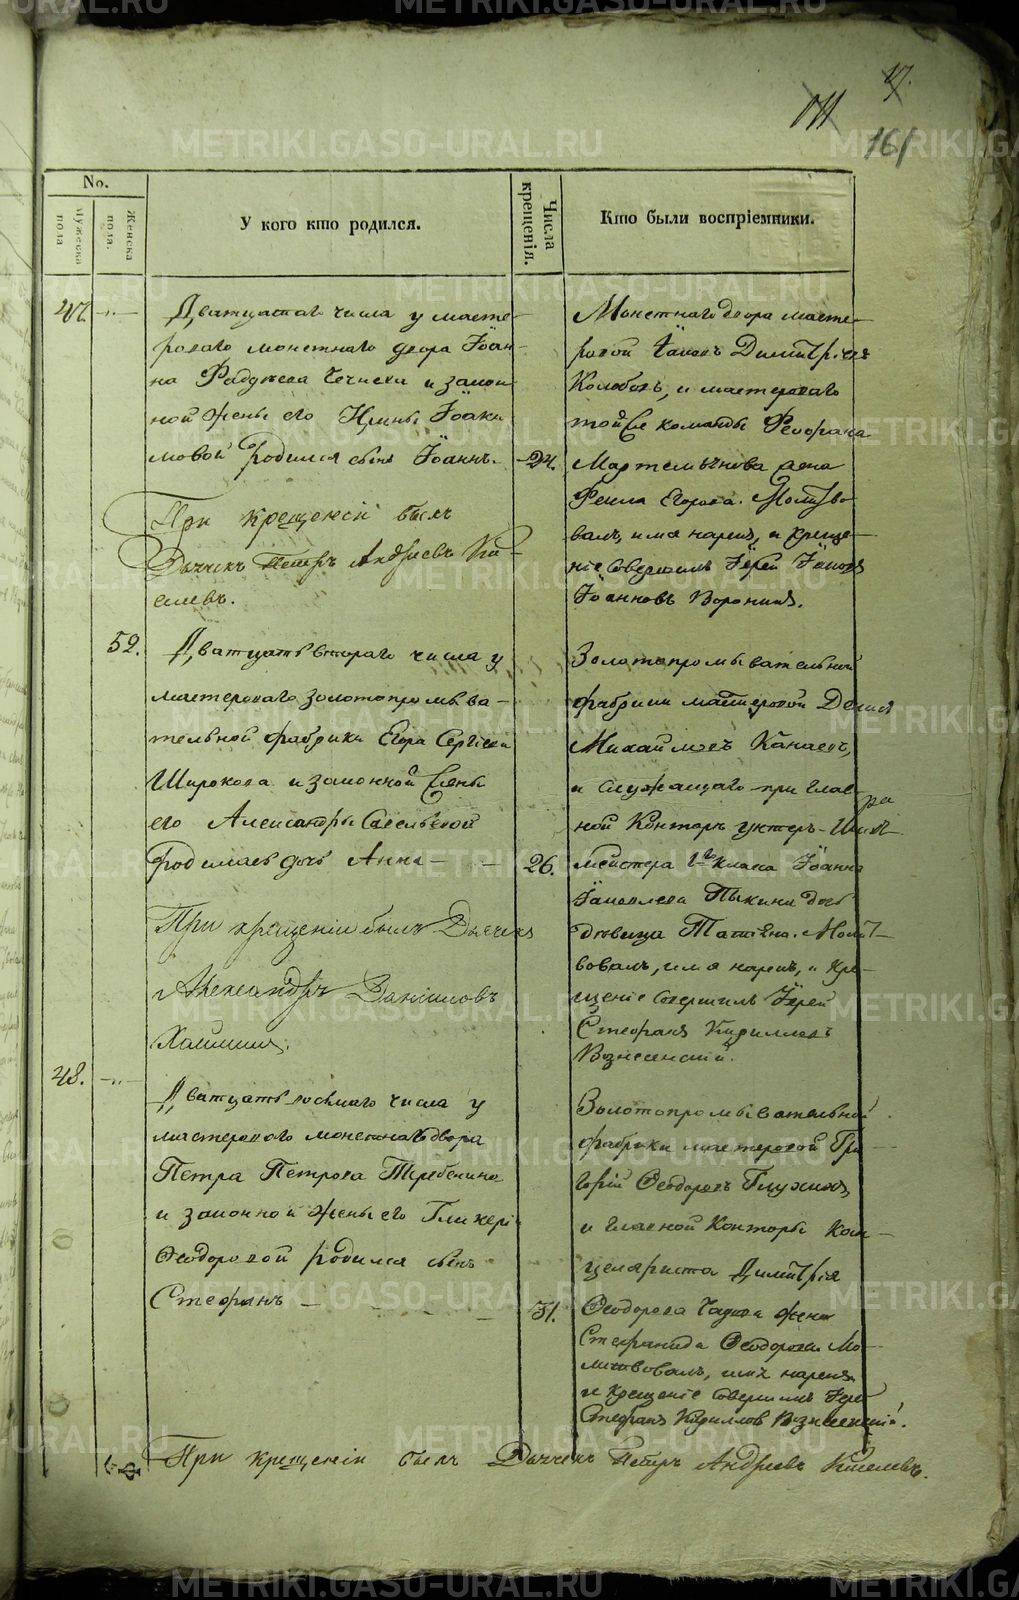 17.
161
No.
Мужеска пола
Женска пола.
У кого кто родился.
Числа крещенія.
Кто были воспріемники.
47.
Дватцатаго числа у масте-
роваго монетнаго двора Іоан-
на Фаддѣева и закон-
ной жены его Ирины Іоаки
мовой родился сынъ Іоаннъ.
При крещеніи былъ
Дьячекъ Петръ Андреевъ Ки-
селевъ.
24.
Монетнаго двора масте-
ровой Іаковъ Димитріевъ
Колобовъ, и мастероваго
тойже команды Феофана
Мартемьянова жена
Фекла Егорова. Молитво-
валъ, имя нарекъ, и креще-
ніе совершилъ Іерей Іаковъ
Іоанновъ Воронинъ.
52.
Дватцать втораго числа у
мастероваго золотопромыва-
тельной фабрики Егора Сергѣева
Широкова и законной жены
его Александры Савельевой
родилась дочь Анна
При крещеніи былъ Дьячекъ
Александръ Даниловъ
26.
Золотопромывательной
фабрики мастеровой
Михайловъ Канаевъ,
и служащаго при глав-
ной Конторѣ унтеръ-Шихт
мейстера 1го класа Іоанна
Іаковлева Пыкина дочь
девица Татіяна. Молит-
вовалъ, имя нарекъ, и кре-
щеніе совершилъ Іерей
Стефанъ Кирилловъ
Вознесенскій.
48.
Дватцать восьмаго числа у
мастероваго монетнаго двора
Петра Петрова Теребенина
и законной жены его Гликеріи
Ѳеодоровой родился сынъ
Стефанъ
31.
Золотопромывательной
фабрики мастеровой Гри-
горій Ѳеодоровъ Глухихъ,
и главной Конторы Кан-
целяриста Димитрія
Ѳеодорова жена
Стефанида Ѳеодорова Мо-
литвовалъ, имя нарекъ
и крещеніе совершилъ Іерей
Стефанъ Кирилловъ Вознесенскій.
При крещеніи былъ Дьячекъ Петръ Андреевъ Киселевъ.
METRIKI.GASO-URAL.RU